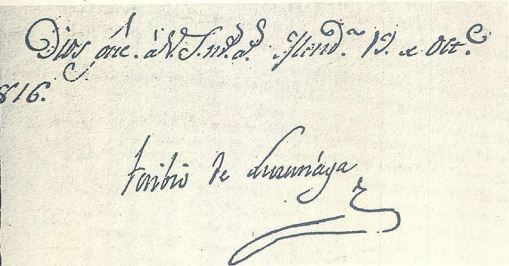 Dios gūe. á V. S. m.s a.s Mend.a 19. de Oct.e
816.
Toribio de Luzuriaga